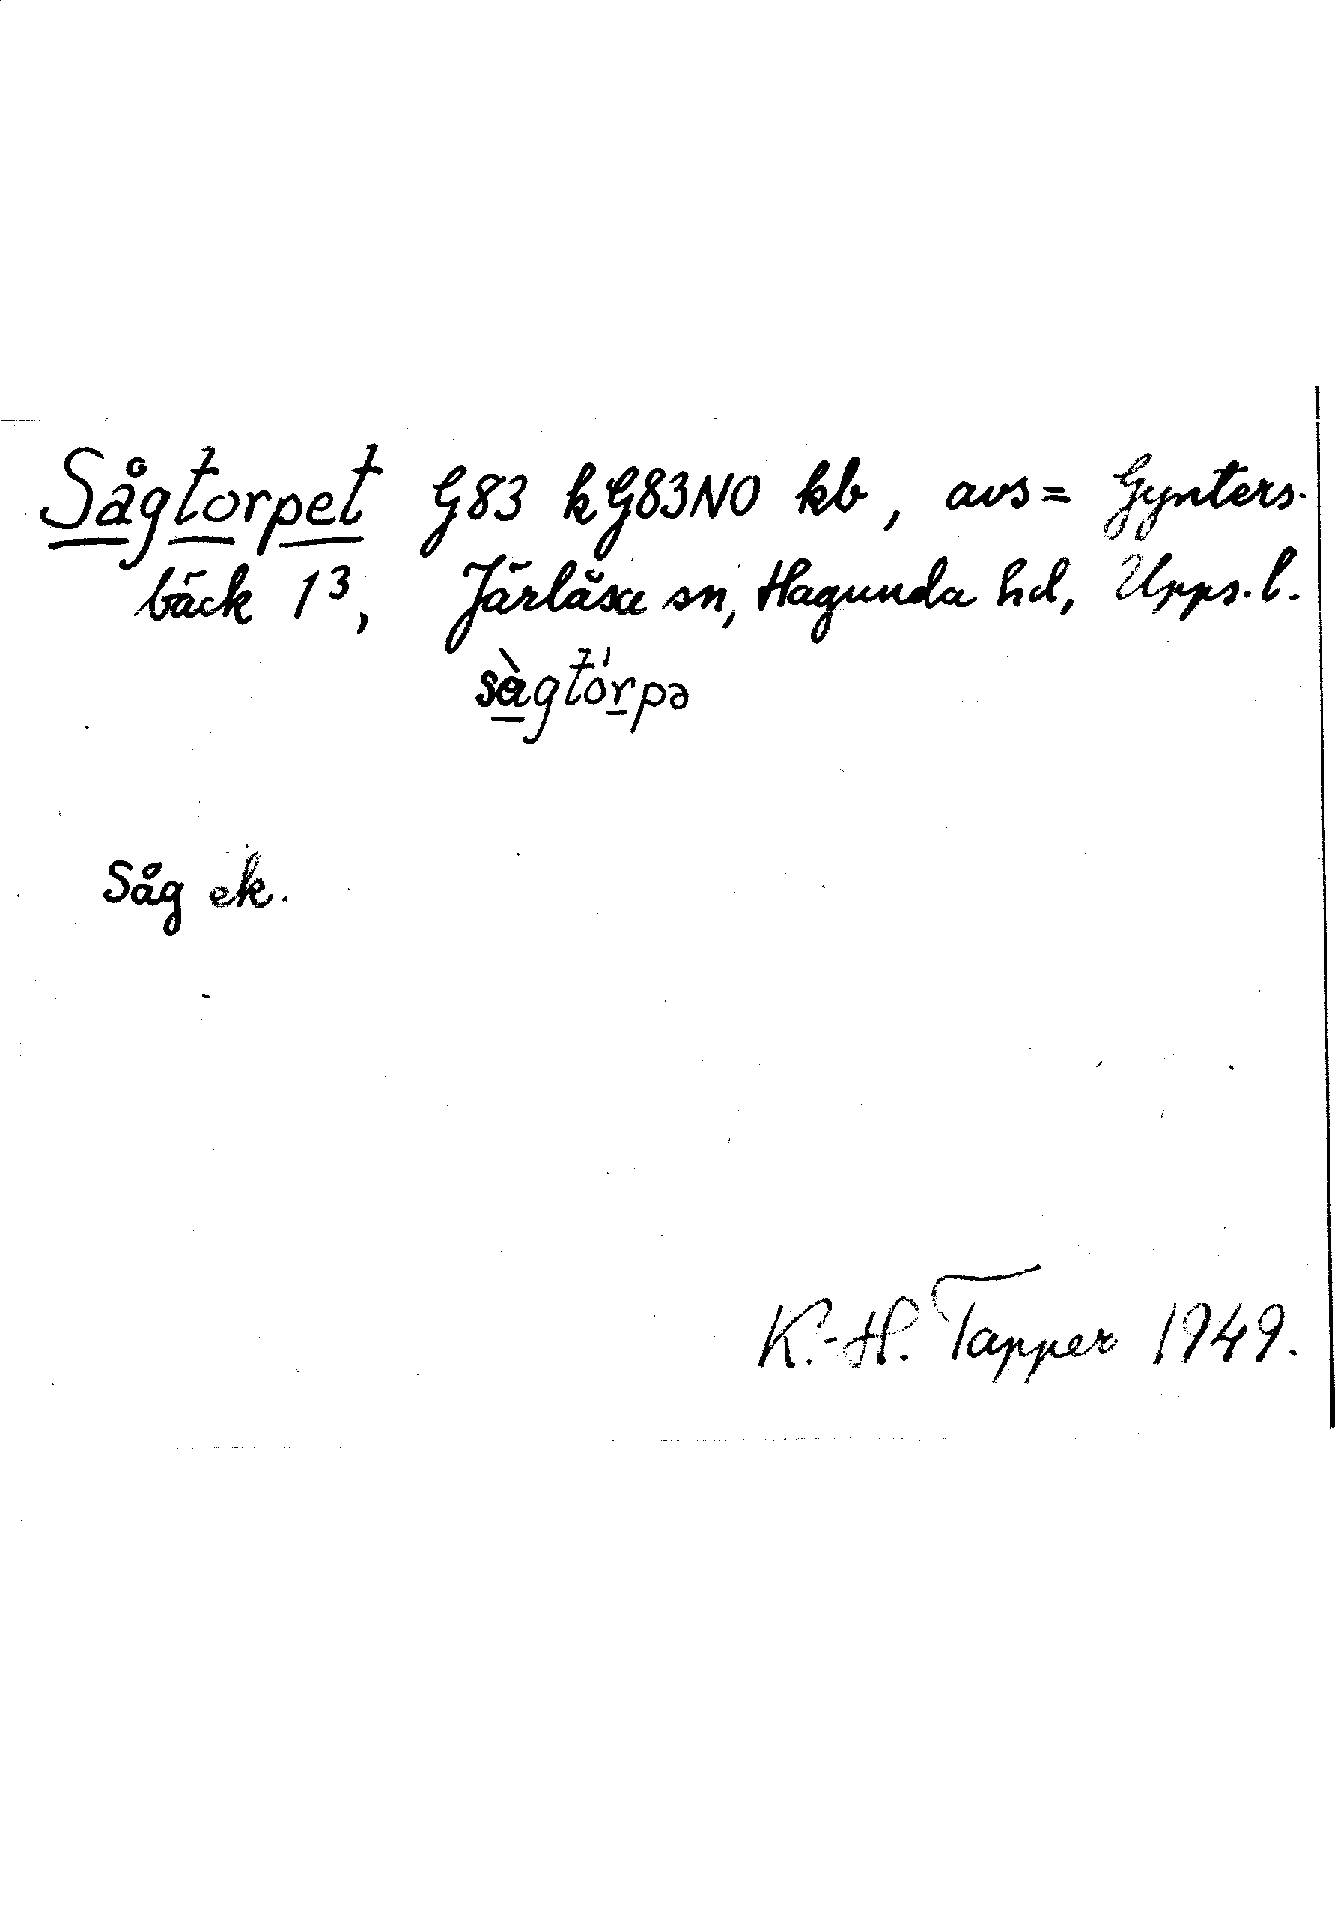 Sågtorpet G83 kG83NO kb, avs= Gynters-
bäck 1³, Järlåsa sn, Hagunda hd, Upps. l.
sàgtórpə
Såg ek.
K.-H. Tapper 1949.